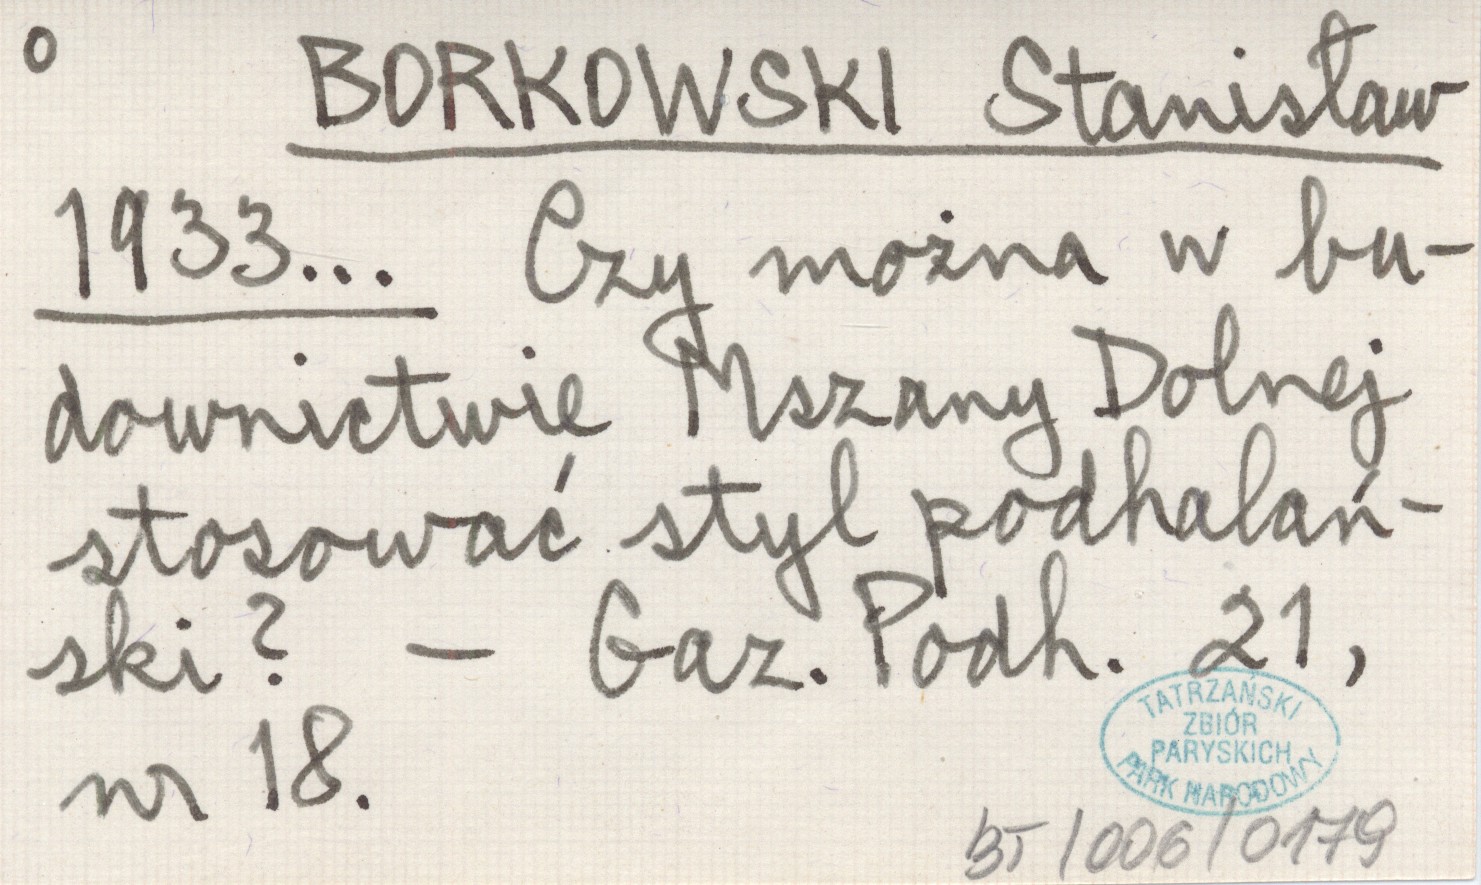 o BORKOWSKI Stanisław
1933... Czy można w bu-
downictwie Mszany Dolnej
stosować styl podhalań-
ski? — Gaz. Podh. 21,
nr 18.
TATRZAŃSKI
ZBIÓR
PARYSKICH
PARK NARODOWY
BT/006/0179